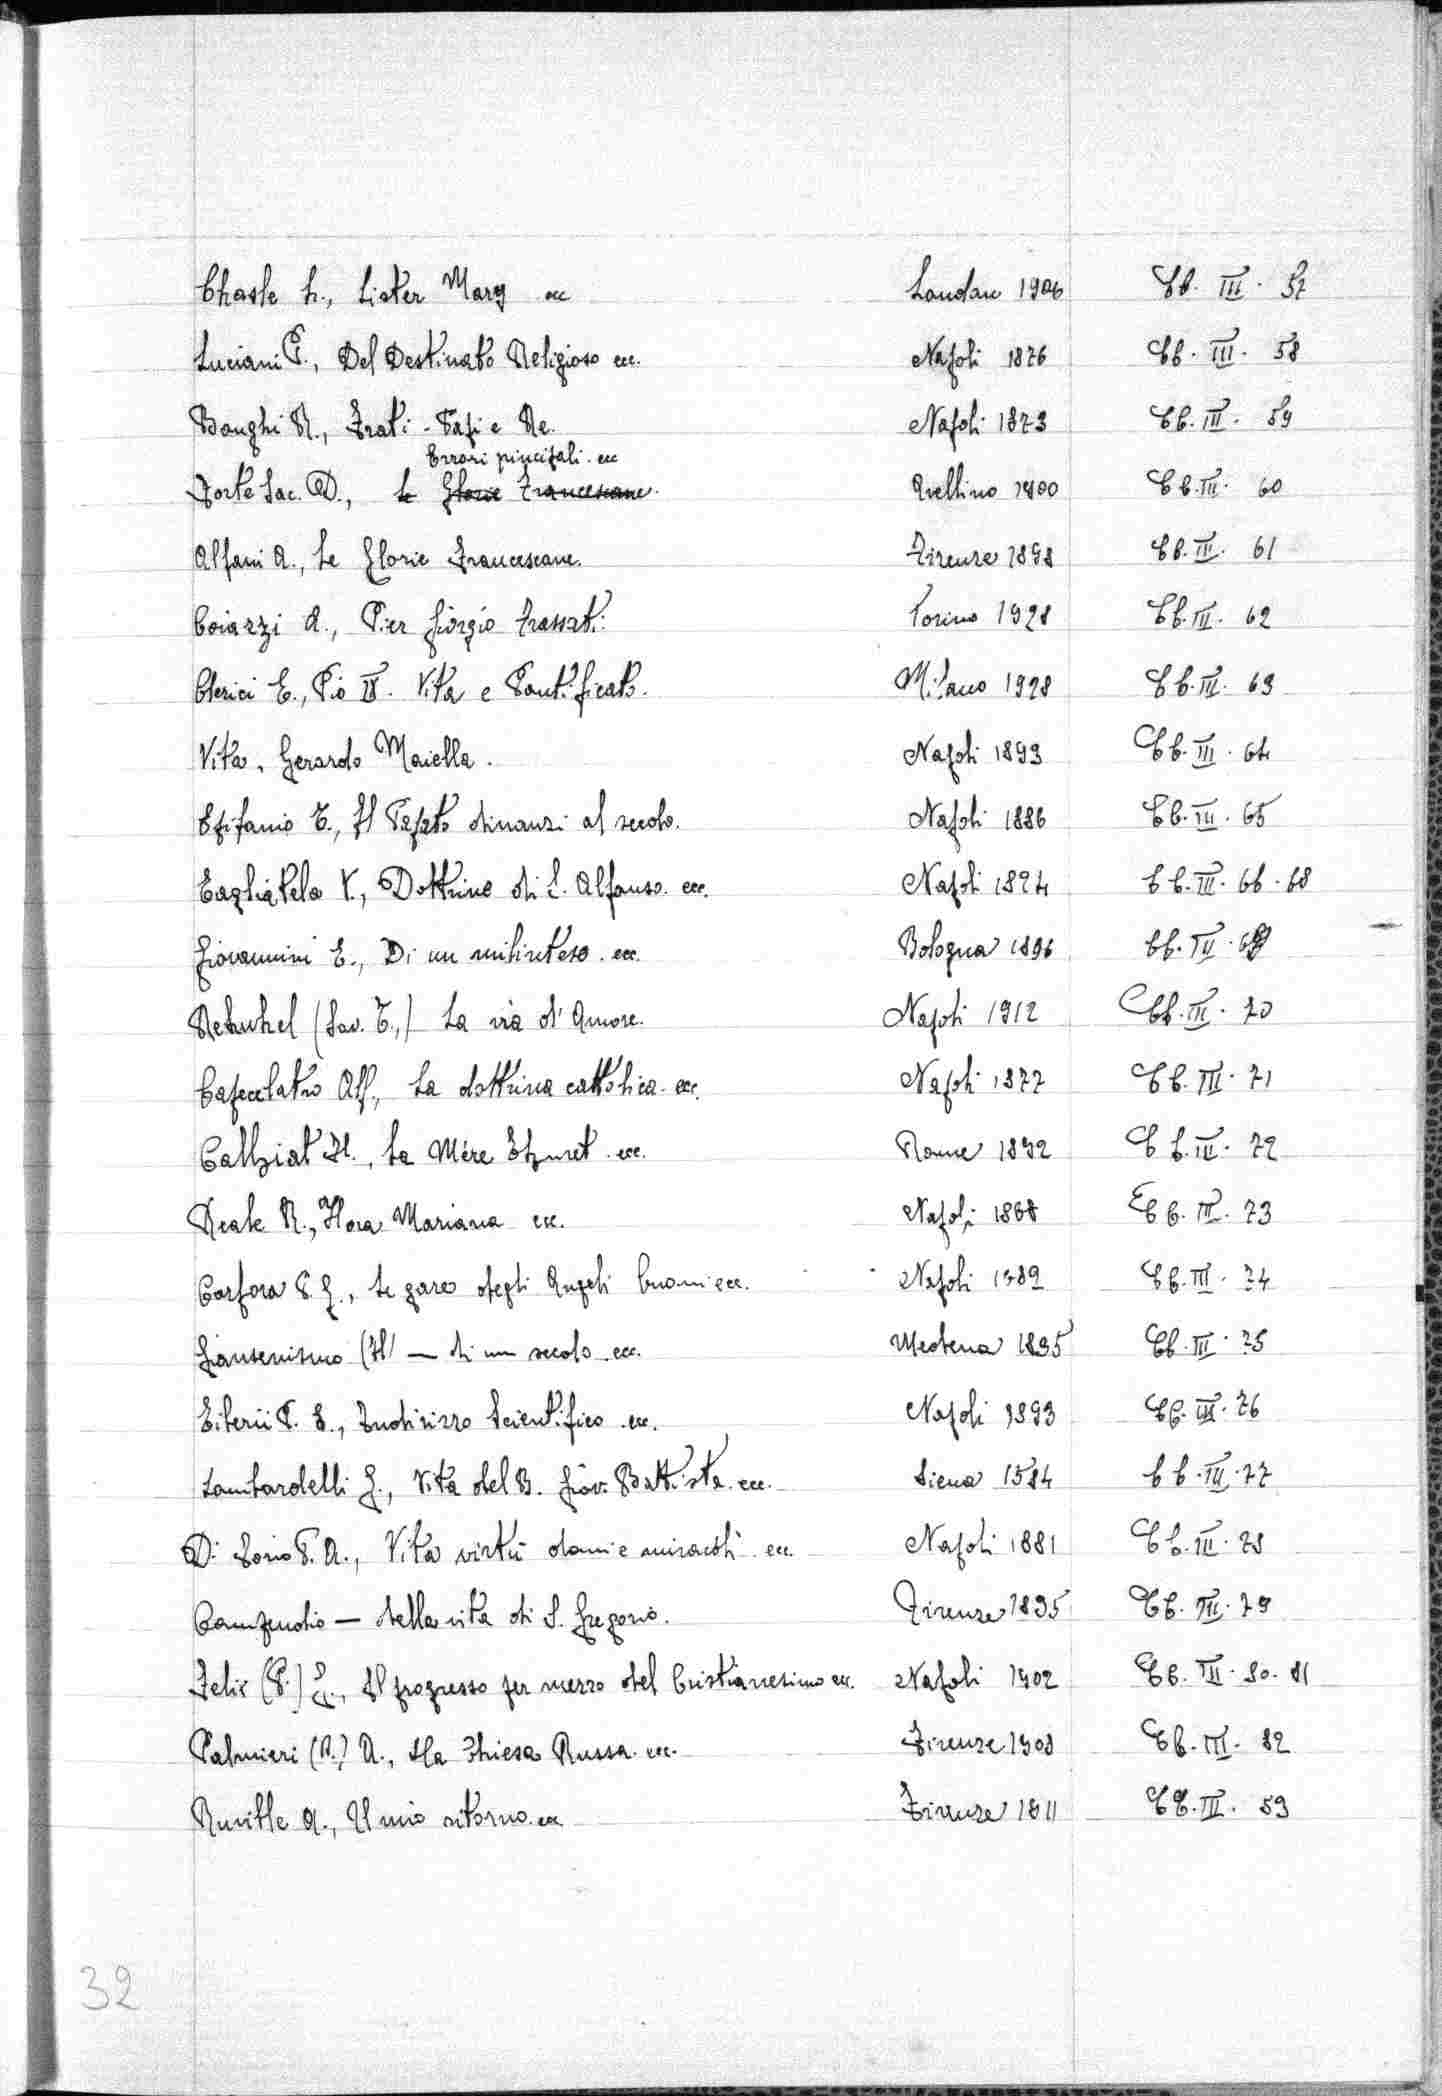 Chasle L., Sister Mary ecc London 1906 Cb. III. 57
Luciani P., Del Destinato Religioso ecc. Napoli 1876 Cb. III. 58
Bonghi R., Frati - Papi e Re. Napoli 1873 Cb. III. 59
Errori pincipali. ecc
Forte Sac. D., Le Glorie Francescane. Avellino 1900 Cb. III. 60
Alfani A., Le Glorie Francescane. Firenze 1898 Cb. III. 61
Coiazzi A., Pier Giorgio Frassati: Torino 1928 Cb. III. 62
Clerici E., Pio IX. Vita e Pontificato. Milano 1928 Cb. III. 63
Vita. Gerardo Maiella. Napoli 1893 Cb. III. 64
Epifanio T., Il Papato dinanzi al secolo. Napoli 1886 Cb. III. 65
Taglialatela V., Dottrine di S. Alfonso. ecc. Napoli 1894 Cb. III. 66-68
Giovannini E., Di un malinteso. ecc. Bologna 1896 Cb. III. 69
(Sav. T.,) La via d'Amore. Napoli 1912 Cb. III. 70
Capecelatro Alf., La dottrina cattolica. ecc. Napoli 1877 Cb. III. 71
La Mère ecc. Rome 1892 Cb. III. 72
Reale R., Flora Mariana ecc. Napoli 1868 Cb. III. 73
Carfora P. G., Le gare degli Angeli buoni ecc. Napoli 1889 Cb. III. 74
Giansenismo (Il) — di un secolo ecc. Modena 1895 Cb. III. 75
Indirizzo Scientifico ecc. Napoli 1893 Cb. III. 76
Lombardelli G., Vita del B. Giov. Battista. ecc. Siena 1584 Cb. III. 77
Di Iorio P. A., Vita virtù doni e miracoli ecc. Napoli 1881 Cb. III. 78
Compendio — della vita di S. Gregorio. Firenze 1895 Cb. III. 79
Felix (P.) Il progresso per mezzo del Cristianesimo ecc. Napoli 1902 Cb. III. 80-81
Palmieri (P.) A., La Chiesa Russa. ecc. Firenze 1908 Cb. III. 82
Ruville A., Il mio ritorno. ecc Firenze 1911 Cb. III. 59
32